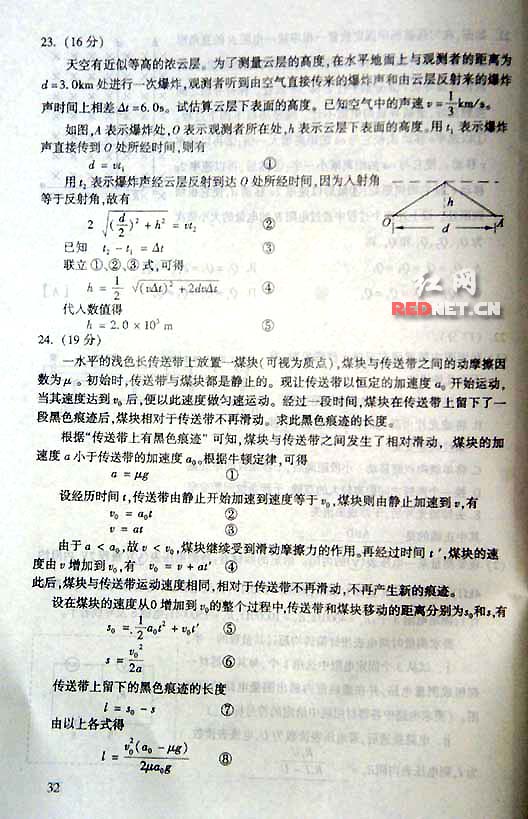 23. (16分)
天空有近似等高的浓云层。为了测量云层的高度,在水平地面上与观测者的距离为
d=3.0km处进行一次爆炸,观测者听到由空气直接传来的爆炸声和由云层反射来的爆炸
声时间上相差Δt=6.0s。试估算云层下表面的高度。已知空气中的声速v=1/3km/s。
如图,A表示爆炸处,O表示观测者所在处,h表示云层下表面的高度。用t₁表示爆炸
声直接传到O处所经时间,则有
d=vt₁ ①
用t₂表示爆炸声经云层反射到达O处所经时间,因为入射角
等于反射角,故有
2√((d/2)²+h²)=vt₂ ②
已知 t₂-t₁=Δt ③
联立①、②、③式,可得
h=1/2 √((vΔt)²+2dvΔt) ④
代入数值得
h=2.0×10³ m ⑤
h
O
d
A
红网
REDNET.CN
24. (19分)
一水平的浅色长传送带上放置一煤块(可视为质点),煤块与传送带之间的动摩擦因
数为μ。初始时,传送带与煤块都是静止的。现让传送带以恒定的加速度a₀开始运动,
当其速度达到v₀后,便以此速度做匀速运动。经过一段时间,煤块在传送带上留下了一
段黑色痕迹后,煤块相对于传送带不再滑动。求此黑色痕迹的长度。
根据“传送带上有黑色痕迹”可知,煤块与传送带之间发生了相对滑动,煤块的加
速度a小于传送带的加速度a₀。根据牛顿定律,可得
a=μg ①
设经历时间t,传送带由静止开始加速到速度等于v₀,煤块则由静止加速到v,有
v₀=a₀t ②
v=at ③
由于a<a₀,故v<v₀,煤块继续受到滑动摩擦力的作用。再经过时间t′,煤块的速
度由v增加到v₀,有 v₀=v+at′ ④
此后,煤块与传送带运动速度相同,相对于传送带不再滑动,不再产生新的痕迹。
设在煤块的速度从0增加到v₀的整个过程中,传送带和煤块移动的距离分别为s₀和s,有
s₀=1/2 a₀t²+v₀t′ ⑤
s=v₀²/2a ⑥
传送带上留下的黑色痕迹的长度
l=s₀-s ⑦
由以上各式得
l=v₀²(a₀-μg)/2μa₀g ⑧
32